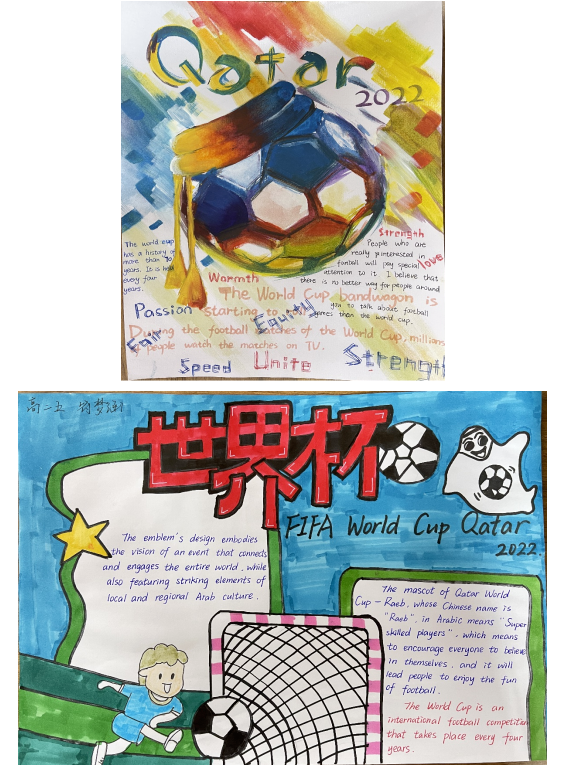 Qatar
2022
The world cup
has a history of
more than 70
years. It is held
every four
years.
Strength
People who are
really ininterested in
football will pay special
love
attention to it. I believe that
there is no better way for people around
you to talk about football
games than the world cup.
Warmth
The World Cup bandwagon is
Passion
starting to
Equity
Fair
During the football matches of the World Cup, millions
people watch the matches on TV.
Speed
Unite
Strength
高二五
世界杯
FIFA World Cup Qatar
2022.
The emblem's design embodies
the vision of an event that connects
and engages the entire world, while
also featuring striking elements of
local and regional Arab culture.
The mascot of Qatar World
Cup - Raeb, whose Chinese name is
"Raeb", in Arabic means "Super
skilled players", which means
to encourage everyone to believe
in themselves, and it will
lead people to enjoy the fun
of football.
The World Cup is an
international football competition
that takes place every four
years.